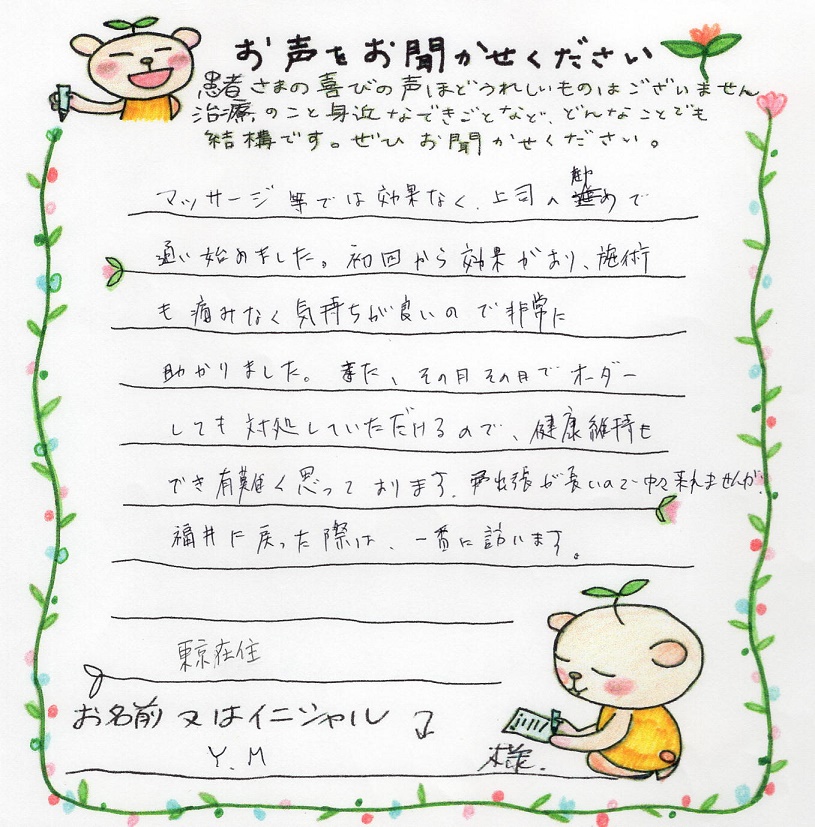 お声をお聞かせください
患者さまの喜びの声ほどうれしいものはございません
治療のこと身近なできごとなど、どんなことでも
結構です。ぜひ お聞かせください。
マッサージ等では効果なく、上司の勧めで
通い始めました。初回から効果があり、施術
も痛みなく気持ちが良いので非常に
助かりました。また、その日その日でオーダー
しても対処していただけるので、健康維持も
でき有難く思っております。出張が長いので中々来れませんが、
福井に戻った際は、一番に訪います。
東京在住
お名前 又はイニシャル
Y.M
様.